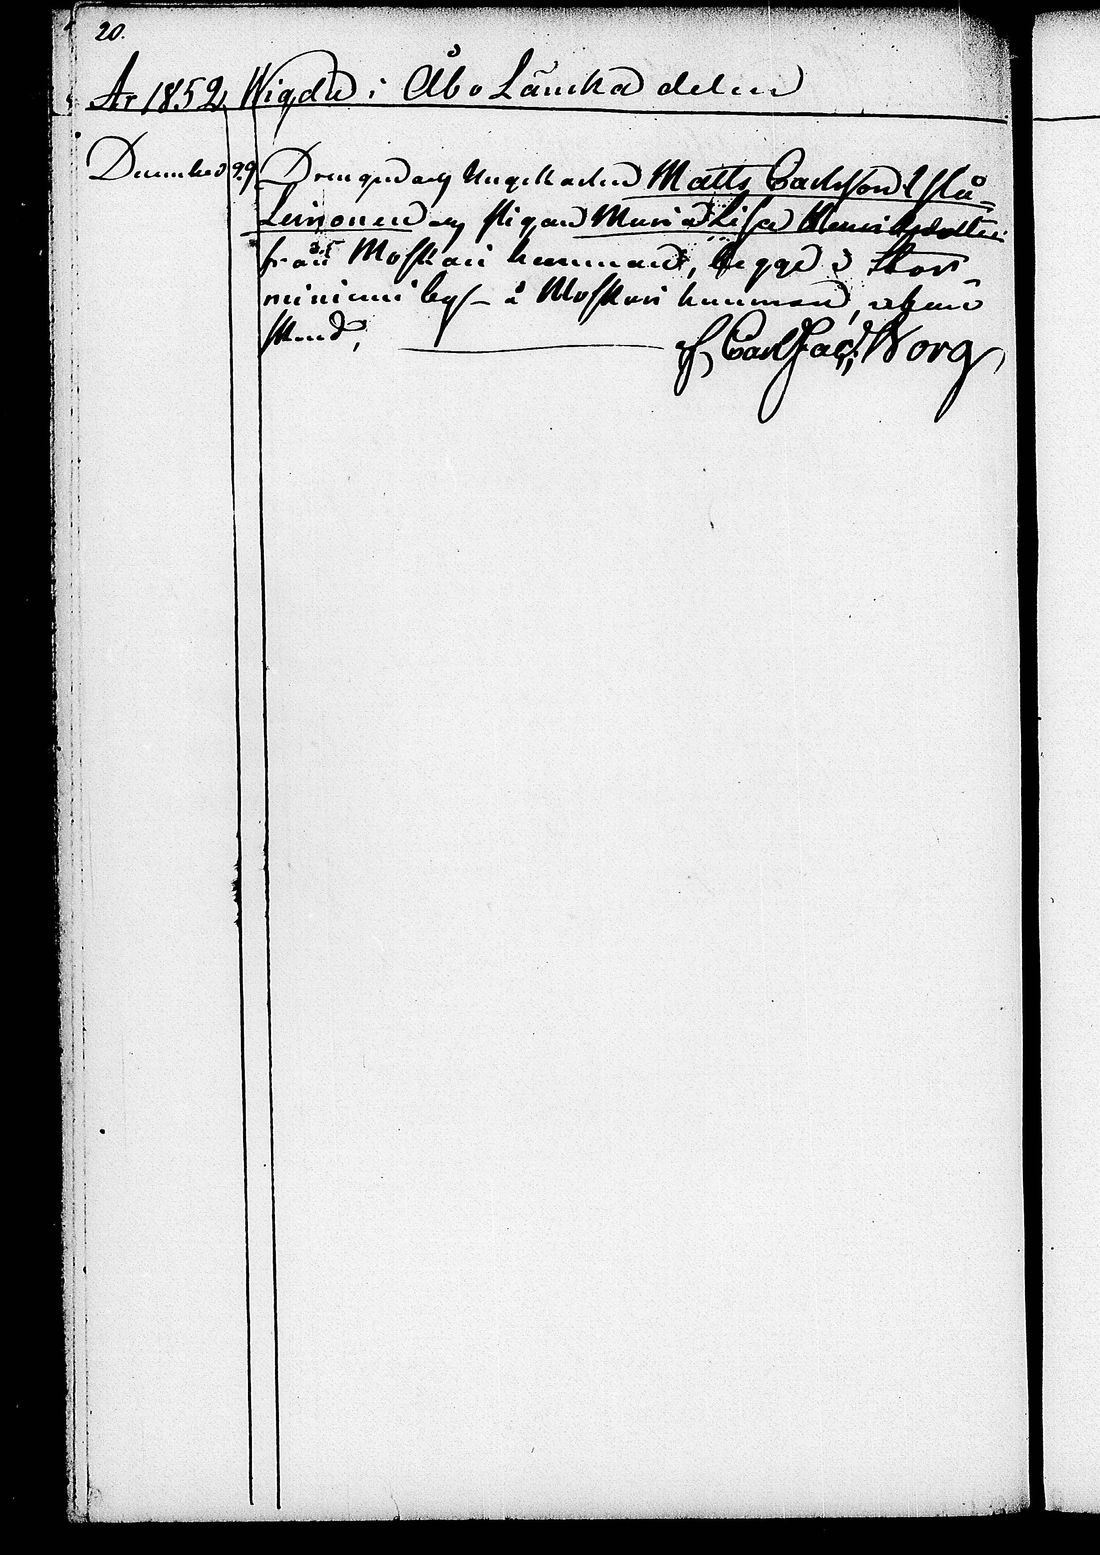 20.
År 1852, Wigde i Åbo Länska delen
December 29 Drengen och Ungkarlen Matts Carlsson
Leinonen och Pigan Maria Lisa Henriksdotter
från Moskari hemman, begge i Stor-
miniemi by å Moskari hemman,
stånd,
af Carl Jac. Borg